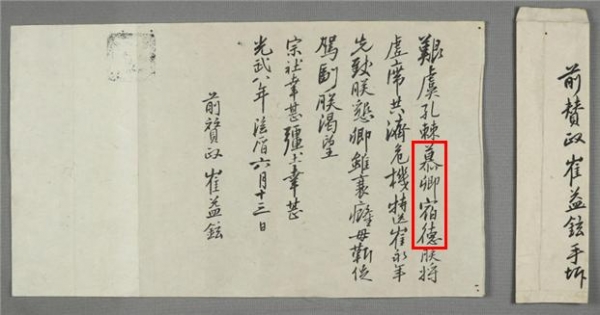 艱虞孔棘慕卿宿德朕將
虛席共濟危機特送崔永年
先致朕懇卿雖衰癃毋靳
駕副朕渴望
宗社幸甚疆土幸甚
光武八年陰曆六月十三日
前贊政崔益鉉
前贊政崔益鉉手坼